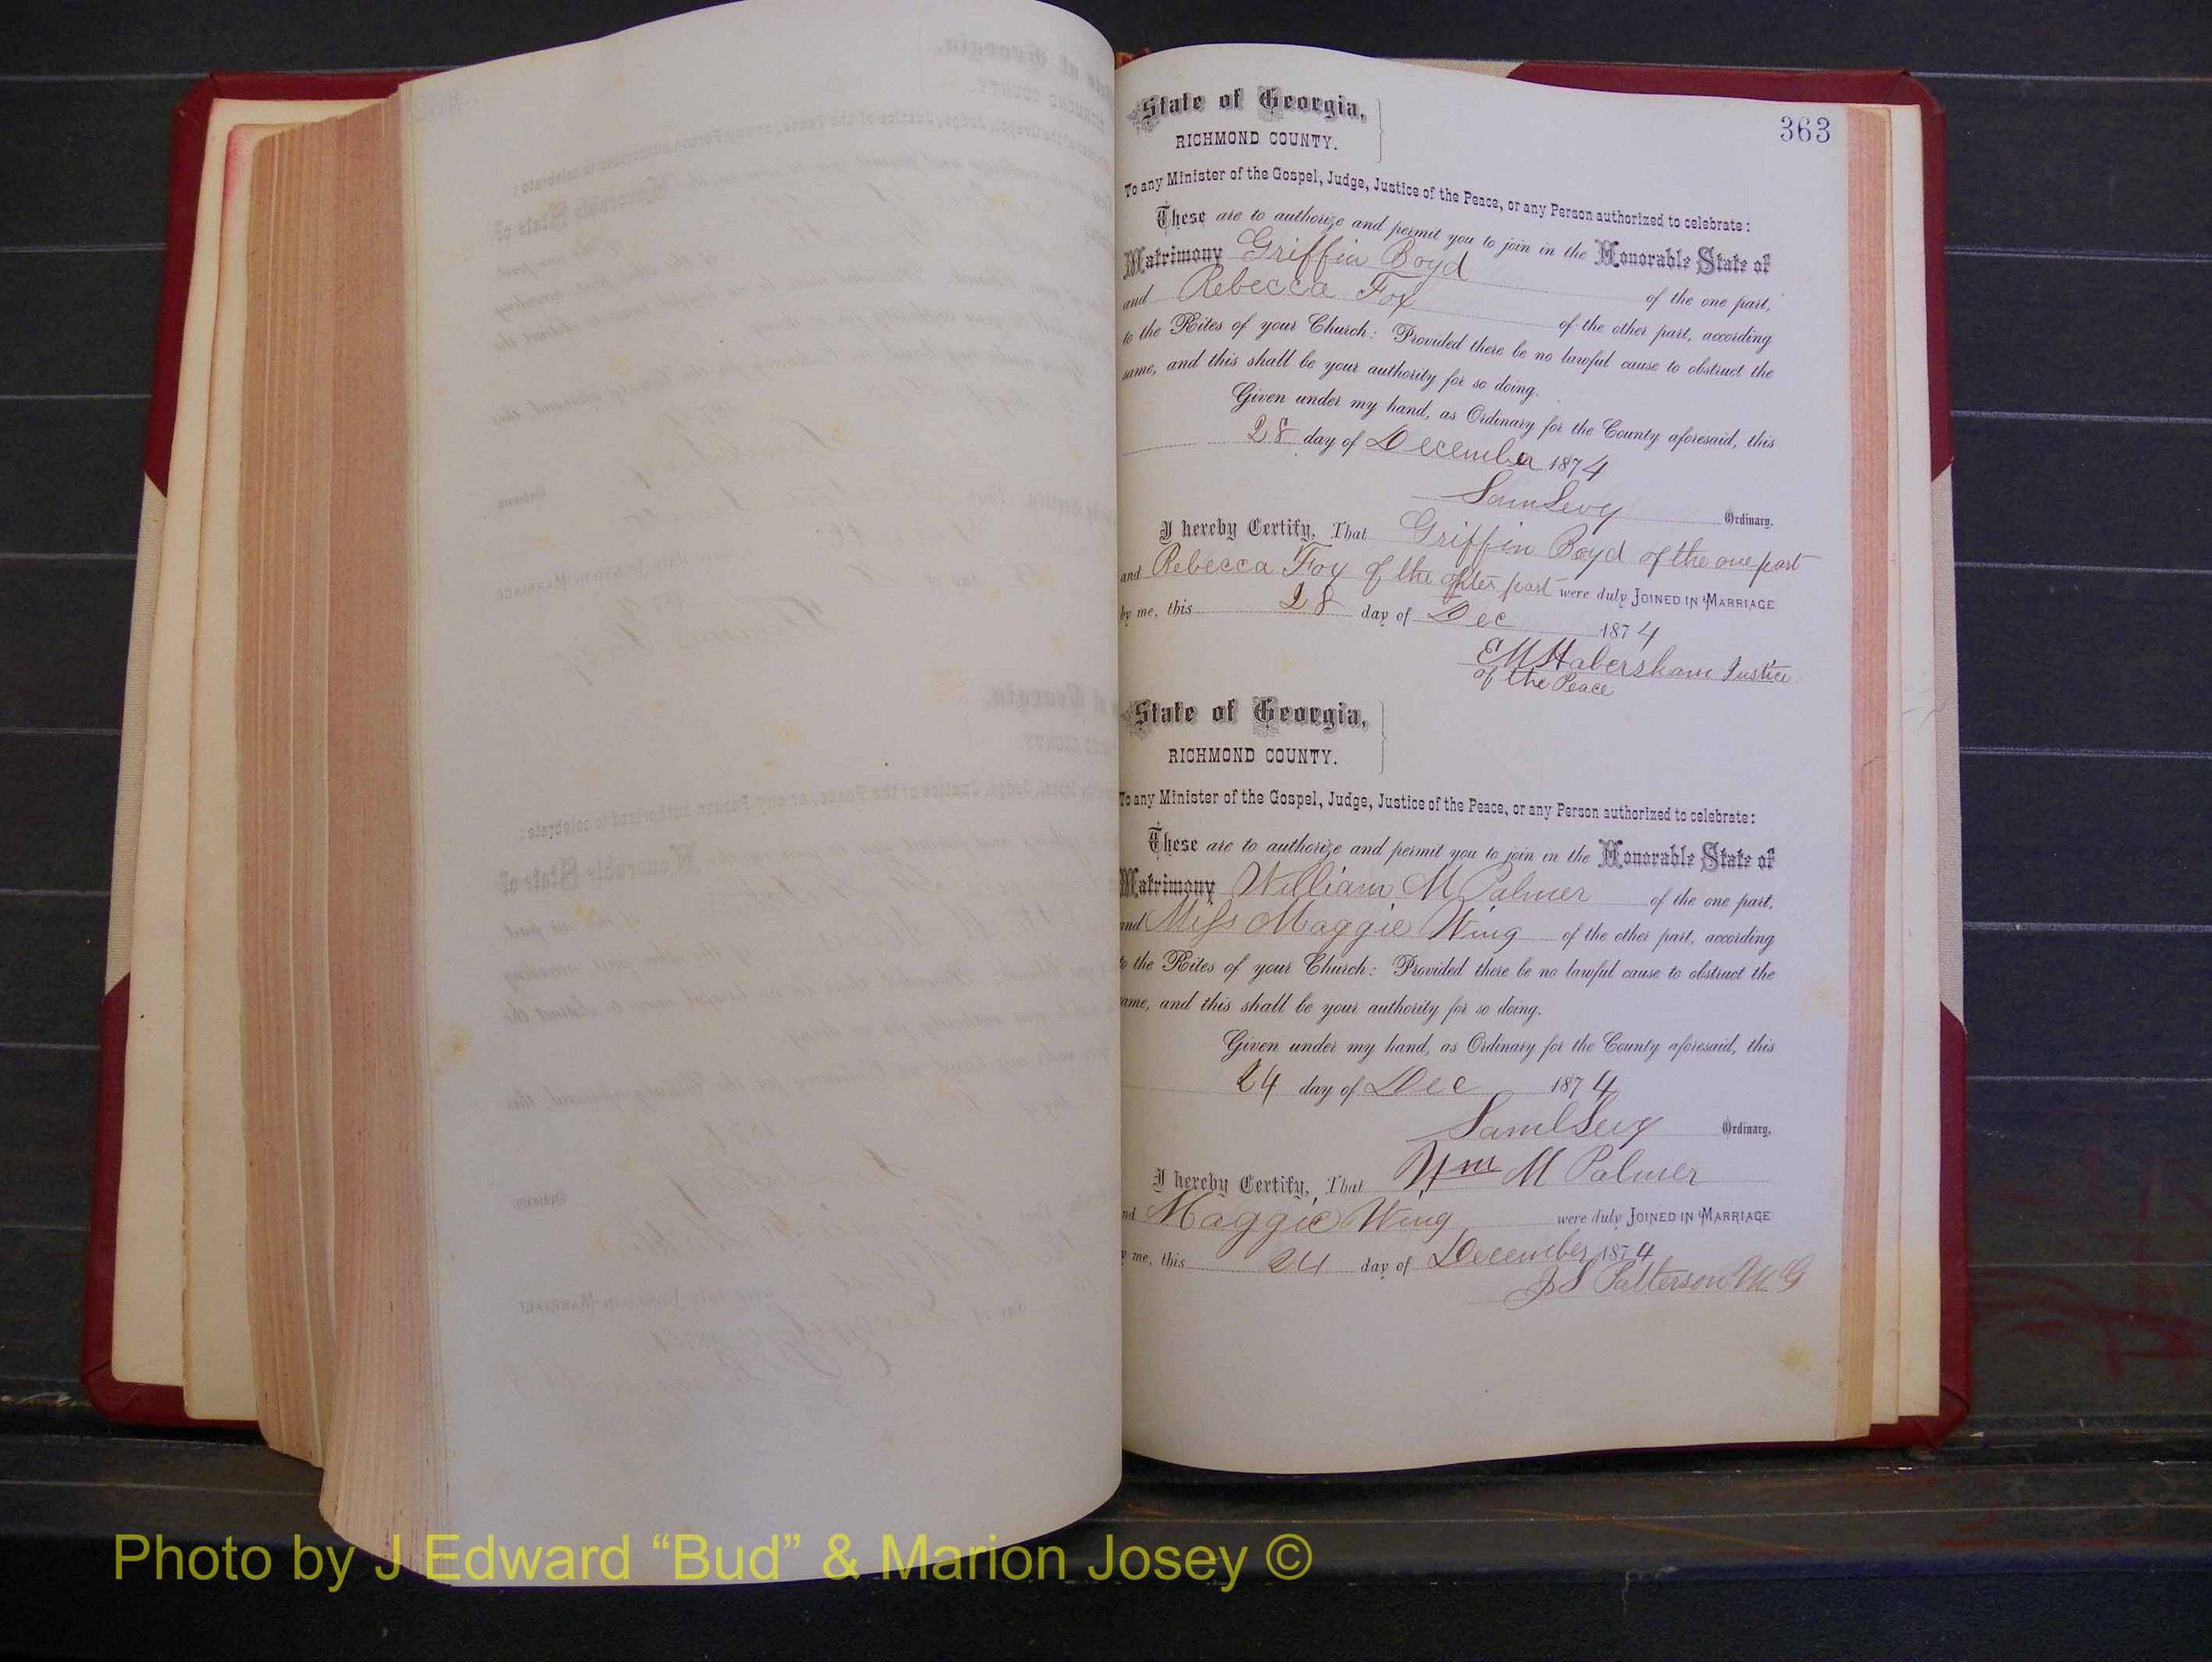 363
State of Georgia,
RICHMOND COUNTY.
To any Minister of the Gospel, Judge, Justice of the Peace, or any Person authorized to celebrate:
These are to authorize and permit you to join in the Honorable State of
Matrimony Griffin Boyd of the one part,
and Rebecca Foy of the other part, according
to the Rites of your Church: Provided there be no lawful cause to obstruct the
same, and this shall be your authority for so doing.
Given under my hand, as Ordinary for the County aforesaid, this
28 day of December 1874
Sam Levy Ordinary.
I hereby Certify, That Griffin Boyd of the one part
and Rebecca Foy of the other part were duly JOINED IN MARRIAGE
by me, this 28 day of Dec 1874
E M Habersham Justice
of the Peace
State of Georgia,
RICHMOND COUNTY.
To any Minister of the Gospel, Judge, Justice of the Peace, or any Person authorized to celebrate:
These are to authorize and permit you to join in the Honorable State of
Matrimony William M Palmer of the one part,
and Miss Maggie Wing of the other part, according
to the Rites of your Church: Provided there be no lawful cause to obstruct the
ame, and this shall be your authority for so doing.
Given under my hand, as Ordinary for the County aforesaid, this
24 day of Dec 1874
Saml Levy Ordinary.
I hereby Certify, That Wm M Palmer
nd Maggie Wing were duly JOINED IN MARRIAGE
y me, this 24 day of December 1874
J S Patterson M G
Photo by J Edward “Bud” & Marion Josey ©